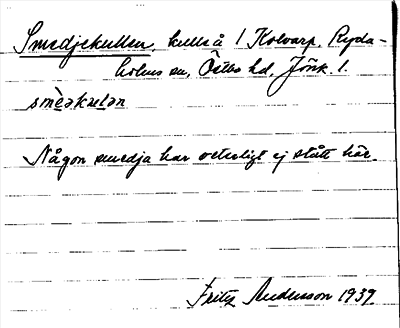 Smedjekullen, kulle å 1 Kolvarp, Ryda-
holms sn, Östbo hd, Jönk. l.
smèəkulən
Någon smedja har veterligt ej stått här.
Fritz Andersson 1939.